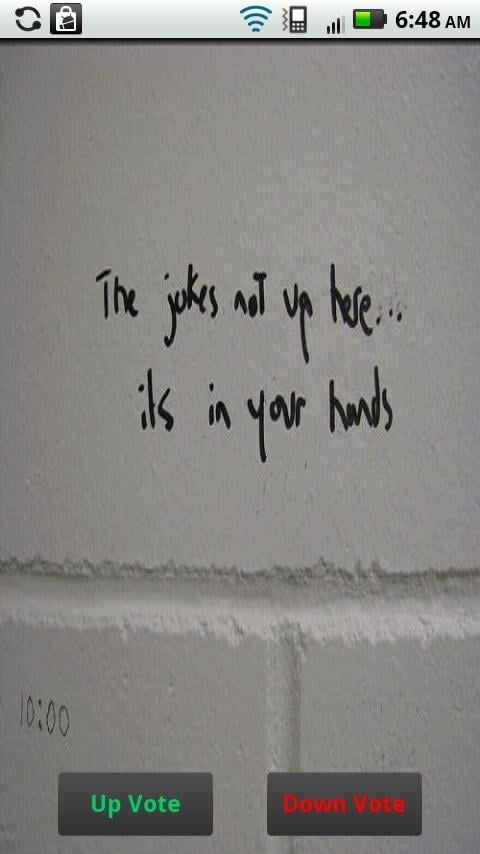 6:48 AM
The jokes not up here...
its in your hands
10:00
Up Vote
Down Vote